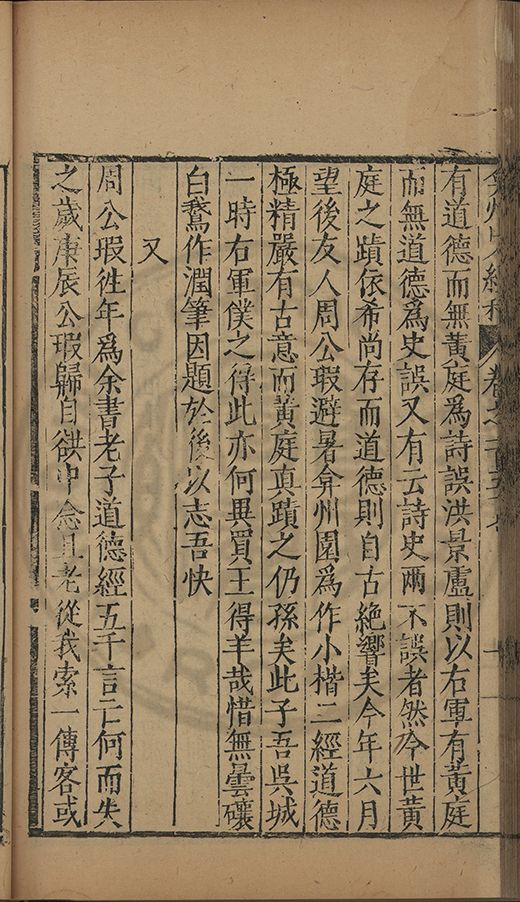 弇州山人續稿 卷之一百五十七
有道德而無黃庭為詩誤洪景盧則以右軍有黃庭
而無道德為史誤又有云詩史兩不誤者然今世黃
庭之蹟依希尚存而道德則自古絕響矣今年六月
望後友人周公瑕避暑弇州園為作小楷二經道德
極精嚴有古意而黃庭真蹟之仍孫矣此子吾吳城
一時右軍僕之得此亦何異買王得羊哉惜無曇礦
白鵞作潤筆因題於後以志吾快
又
周公瑕徃年為余書老子道德經五千言亡何而失
之歲庚辰公瑕歸自
中念且老從我索一傳客或